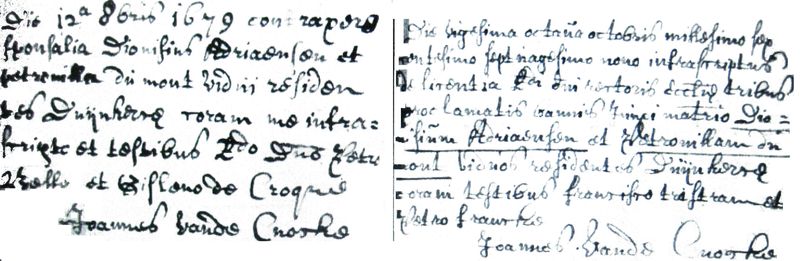 Die 12a 8bris 1679 contraxere
sponsalia Dionisius Adriaensen et
petronilla du mont vidui residen
tes Duijnkercę coram me infra=
scripto et testibus Rdo Petro
et Gisleno de Croque
Joannes vande Cnocke
Die vigesima octava octobris millesimo sex
centesimo septuagesimo nono infrascriptus
de licentia Rdi dni rectoris ecclię tribus
proclamatis bannis junxi matrio Dio=
nisium Adriaensen et Petronillam du
mont viduos residentes Duijnkercę
coram testibus francisco tristram et
Petro francke
Joannes vande Cnocke